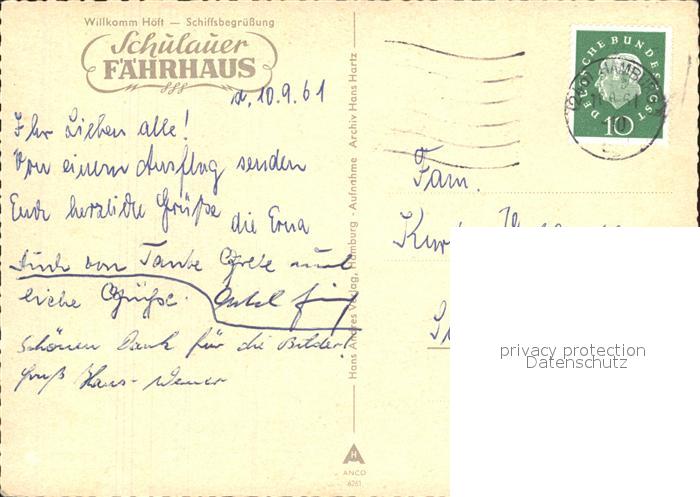 Willkomm Höft — Schiffsbegrüßung
Schulauer
FÄHRHAUS
d. 10.9.61
Ihr Lieben alle!
Von einem Ausflug senden
Euch herzliche Grüße
die Erna
Auch von Tante Grete
liche Grüße.
Schönen Dank für die Bilder!
Gruß Hans-Werner
Hans Andres Verlag, Hamburg - Aufnahme Archiv Hans Hartz
DEUTSCHE BUNDESPOST
10
HAMBURG
Fam.
privacy protection
Datenschutz
H
ANCO
6261